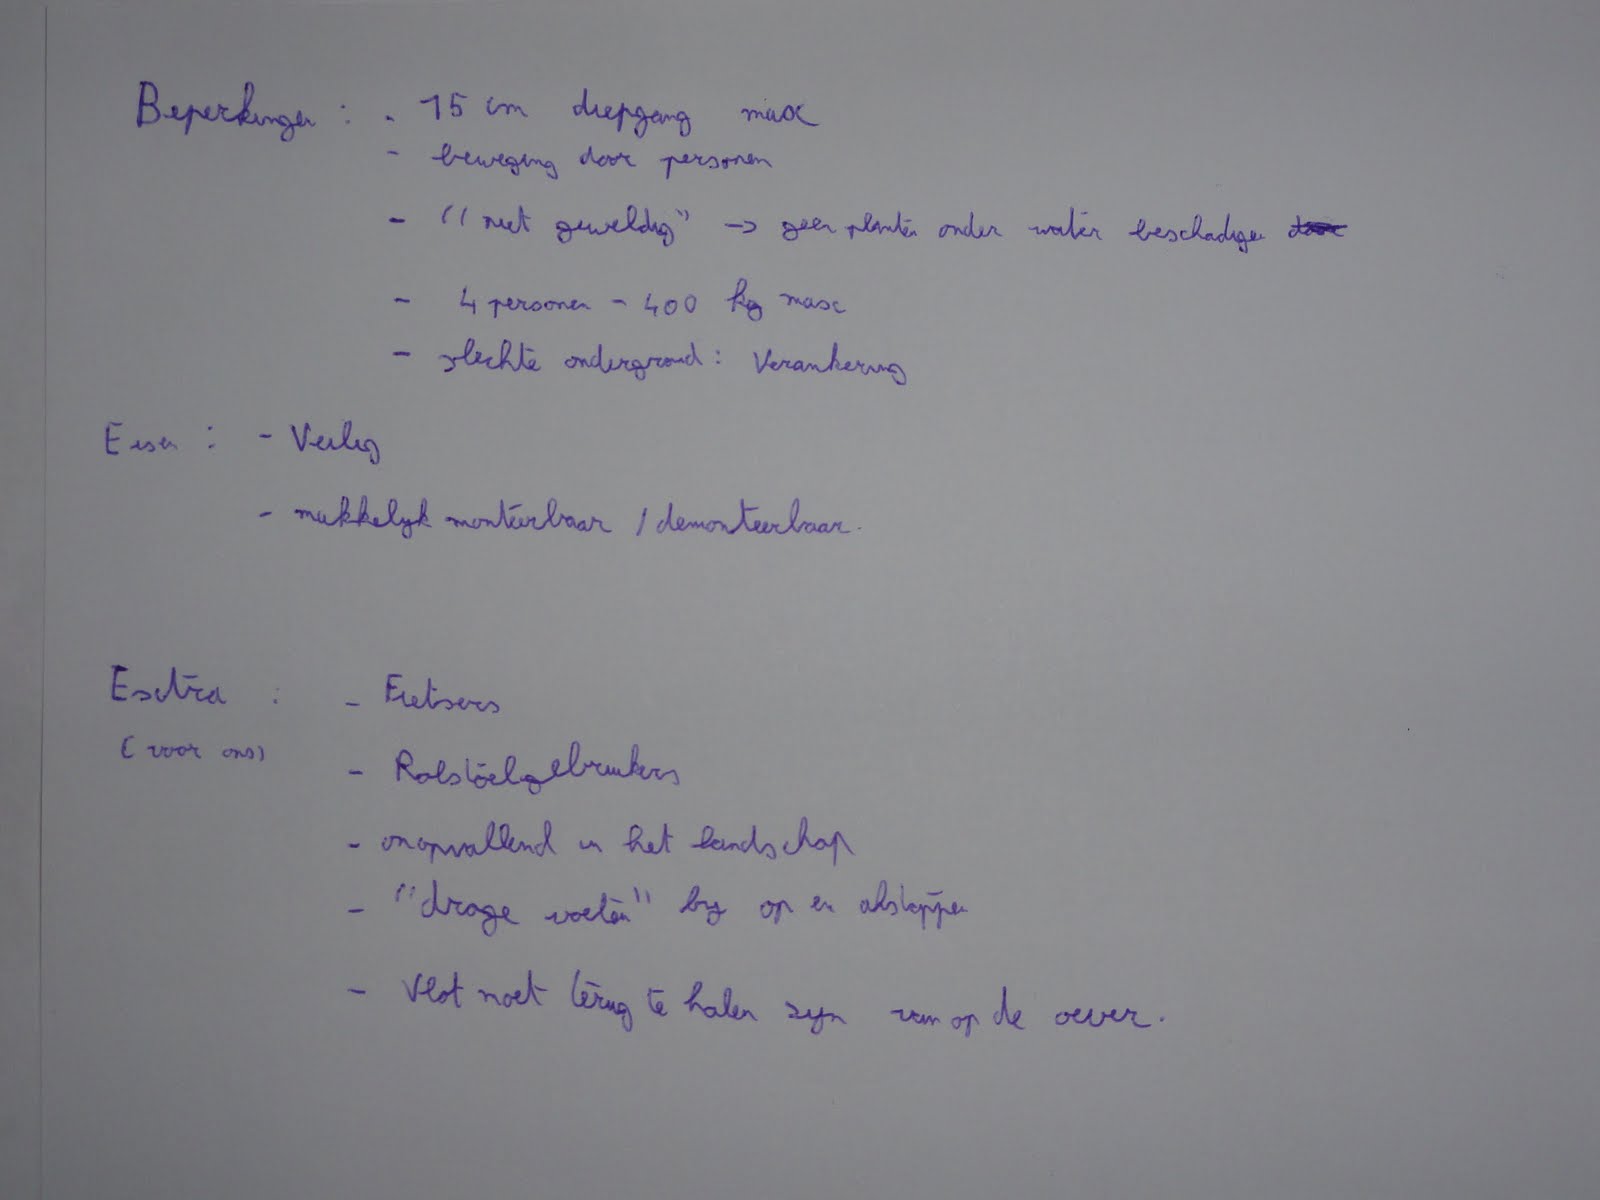 Beperkingen : - 15 cm diepgang max
- beweging door personen
- "niet geweldig" -> geen planten onder water beschadigen
- 4 personen - 400 kg max
- slechte ondergrond : Verankering
Eisen : - Veilig
- makkelijk monteerbaar / demonteerbaar.
Extra : - Fietsers
(voor ons)
- Rolstoelgebruikers
- onopvallend in het landschap
- "droge voeten" bij op en afstappen
- Vlot moet terug te halen zijn van op de oever.